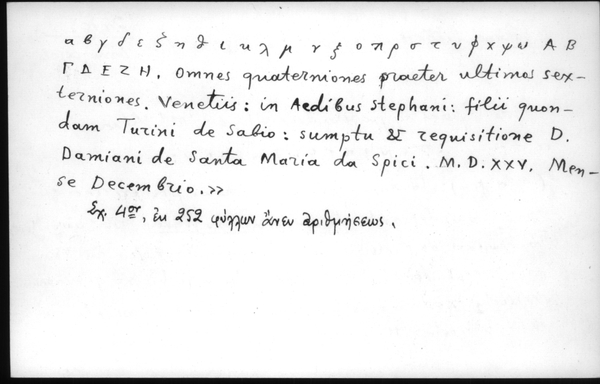 α β γ δ ε ζ η θ ι κ λ μ ν ξ ο π ρ σ τ υ φ χ ψ ω Α Β
Γ Δ Ε Ζ Η. Omnes quaterniones praeter ultimos sex-
terniones. Venetiis: in Aedibus Stephani: filii quon-
dam Turini de Sabio: sumptu & requisitione D.
Damiani de Santa Maria da Spici. M.D.XXV. Men-
se Decembrio.»
Σχ. 4ον, ἐκ 252 φύλλων ἄνευ ἀριθμήσεως.